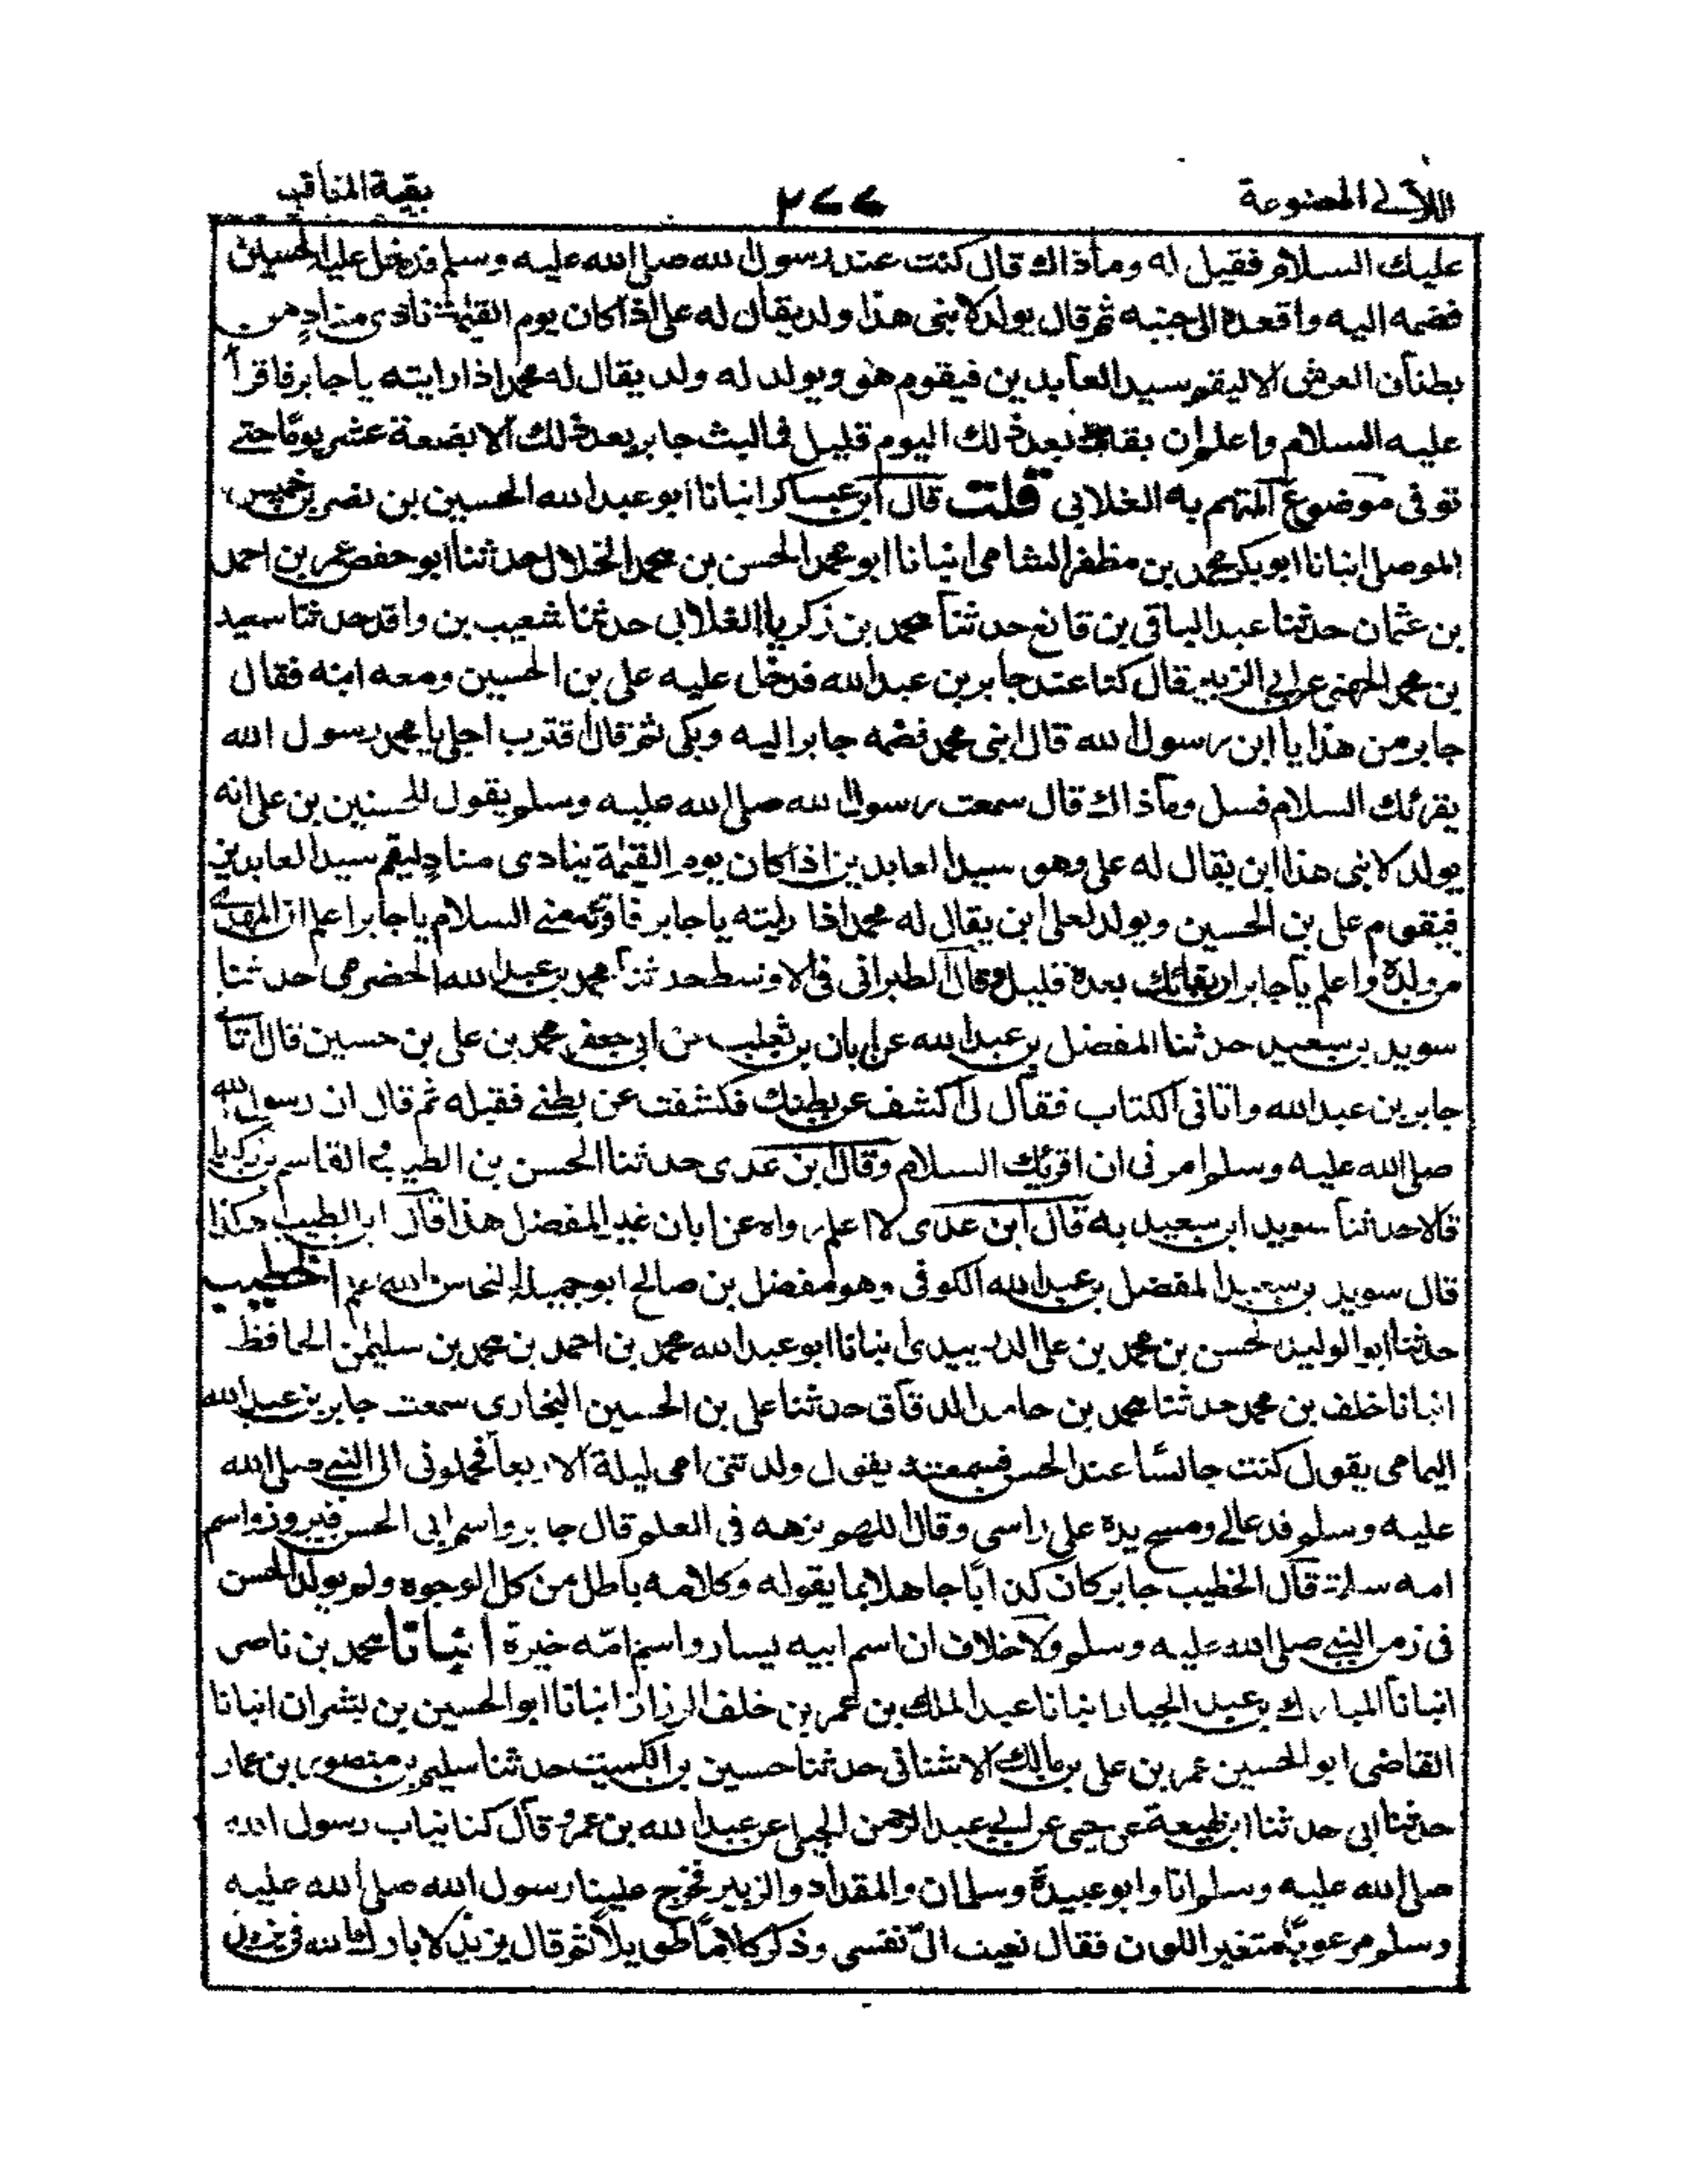 اللآلى المصنوعة
٢٧٧
بقية المناقب
عليك السلام فقيل له وما ذاك قال كنت عند رسول الله صلى الله عليه وسلم فدخل عليه الحسين
فضمه اليه واقعده الى جنبه ثم قال يولد لابنى هذا ولد يقال له على اذا كان يوم القيمة نادى مناد من
بطنان العرش الا ليقم سيد العابدين فيقوم هو ويولد له ولد يقال له محمد اذا رايته يا جابر فاقرأ
عليه السلام واعلم ان بقاءك بعد ذلك اليوم قليل فما لبث جابر بعد ذلك الا بضعة عشر يوما حتى
توفى موضوع المتهم به الغلابى قلت قال ابن عساكر انبانا ابو عبد الله الحسين بن نصر بن خميس
الموصلى انبانا ابو بكر محمد بن مظفر الشامى انبانا ابو محمد الحسن بن محمد الخلال حدثنا ابو حفص عمر بن احمد
بن عثمان حدثنا عبد الباقى بن قانع حدثنا محمد بن زكريا الغلابى حدثنا شعيب بن واقد حدثنا سعيد
بن محمد الجهنى عن ابى الزبير قال كنا عند جابر بن عبد الله فدخل عليه على بن الحسين ومعه ابنه فقال
جابر من هذا يا ابن رسول الله قال ابنى محمد فضمه جابر اليه وبكى ثم قال اقترب اجلى يا محمد رسول الله
يقرئك السلام فسل وما ذاك قال سمعت رسول الله صلى الله عليه وسلم يقول للحسين بن على انه
يولد لابنى هذا ابن يقال له على وهو سيد العابدين اذا كان يوم القيمة ينادى مناد ليقم سيد العابدين
فيقوم على بن الحسين ويولد لعلى ابن يقال له محمد اذا رايته يا جابر فاقرئه منى السلام يا جابر اعلم ان المهدى
من ولده واعلم يا جابر ان بقائك بعده قليل وقال الطبرانى فى الاوسط حدثنا محمد بن عبد الله الحضرمى حدثنا
سويد بن سعيد حدثنا المفضل بن عبد الله عن ابان بن تغلب عن ابى جعفر محمد بن على بن حسين قال اتانى
جابر بن عبد الله وانا فى الكتاب فقال لى اكشف عن بطنك فكشفت عن بطنى فقبله ثم قال ان رسول الله
صلى الله عليه وسلم امرنى ان اقرئك السلام وقال ابن عدى حدثنا الحسن بن الطيب والقاسم بن زكريا
قالا حدثنا سويد ابن سعيد به قال ابن عدى لا اعلم رواه عن ابان غير المفضل هذا قال ابن الطيب هكذا
قال سويد بن سعيد المفضل بن عبد الله الكوفى وهو مفضل بن صالح ابو جميلة النحاس الله اعلم الخطيب
حدثنا ابو الوليد الحسن بن محمد بن على الدربيدى انبانا ابو عبد الله محمد بن احمد بن محمد بن سليمن الحافظ
انبانا خلف بن محمد حدثنا محمد بن حامد الدقاق حدثنا على بن الحسين البخارى سمعت جابر بن عبد الله
اليمامى يقول كنت جالسا عند الحسن فسمعته يقول ولدتنى امى ليلة الاربعا فحملونى الى النبى صلى الله
عليه وسلم فدعا لى ومسح يده على راسى وقال اللهم نزهه فى العلم قال جابر واسم ابى الحسن فيروز واسم
امه سارة قال الخطيب جابر كان كذابا جاهلا بما يقوله وكلامه باطل من كل الوجوه ولم يولد الحسن
فى زمن النبى صلى الله عليه وسلم ولا خلاف ان اسم ابيه يسار واسم امه خيرة انبانا محمد بن ناصر
انبانا المبارك بن عبد الجبار انبانا عبد الملك بن عمر بن خلف الرزاز انبانا ابو الحسين بن بشران انبانا
القاضى ابو الحسين عمر بن على بن مالك الاشنانى حدثنا حسين بن الكميت حدثنا سليم بن منصور بن عمار
حدثنا ابى حدثنا ابن لهيعة عن حيى عن ابى عبد الرحمن الحبلى عن عبد الله بن عمرو قال كنا بباب رسول الله
صلى الله عليه وسلم انا وابو عبيدة وسلمان والمقداد والزبير فخرج علينا رسول الله صلى الله عليه
وسلم مرعوبا متغير اللون فقال نعيت الى نفسى وذكر كلاما طويلا ثم قال يزيد لا بارك الله فى يزيد